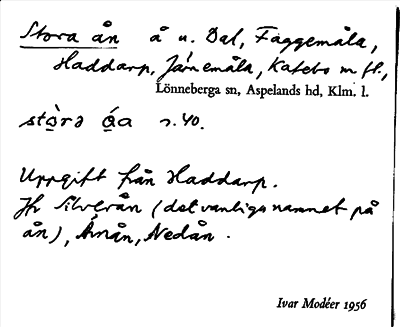 Stora ån å u. Dal, Faggemåla,
Haddarp, Järnemåla, Katebo m fl.,
Lönneberga sn, Aspelands hd, Klm. l.
stòrə ǻa s.40.
Uppgift från Haddarp.
Jfr Silverån (det vanliga namnet på
ån), Åmån, Nedån.
Ivar Modéer 1956